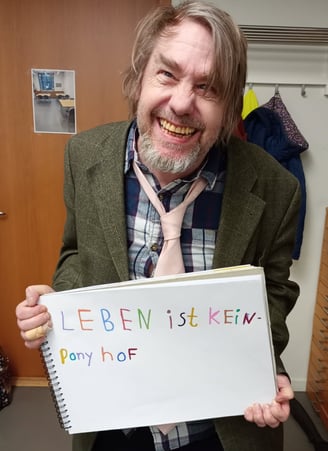 LEBEN ist KEIN-
Pony hoF